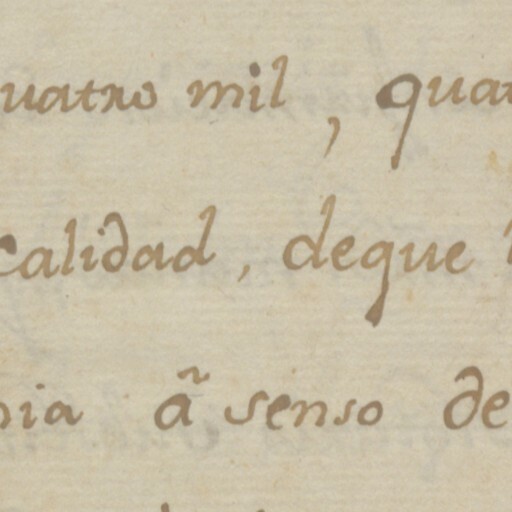 uatro mil, quat
Calidad, deque
ia ã senso de